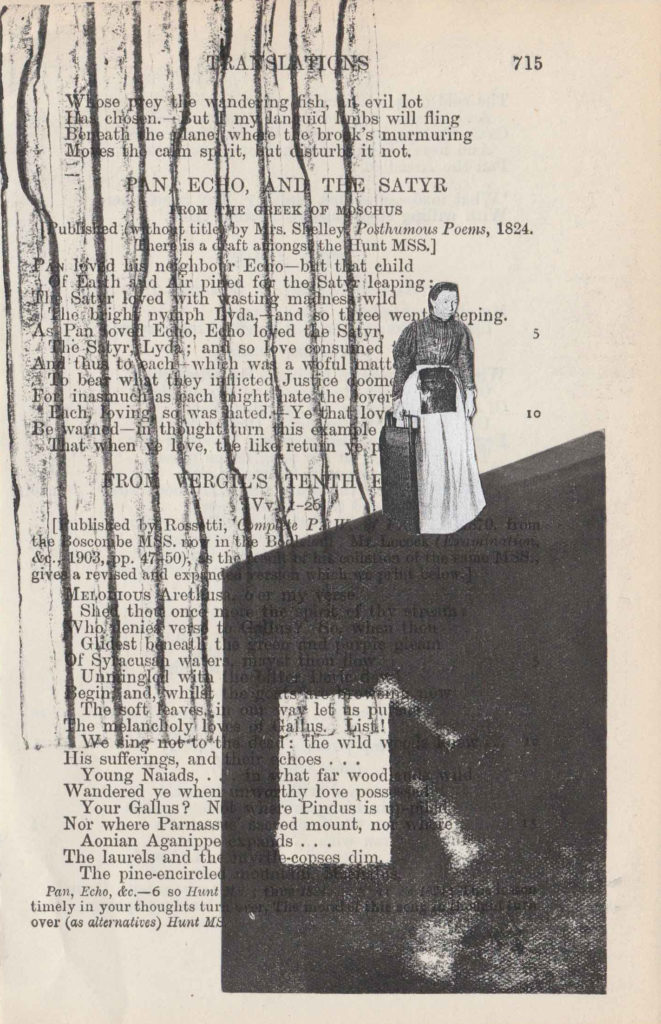 TRANSLATIONS 715
Whose prey the wandering fish, an evil lot
Has chosen.—But I my languid limbs will fling
Beneath the plane, where the brook's murmuring
Moves the calm spirit, but disturbs it not.
PAN, ECHO, AND THE SATYR
FROM THE GREEK OF MOSCHUS
[Published (without title) by Mrs. Shelley, Posthumous Poems, 1824.
There is a draft amongst the Hunt MSS.]
PAN loved his neighbour Echo—but that child
Of Earth and Air pined for the Satyr leaping;
The Satyr loved with wasting madness wild
The bright nymph Lyda,—and so three went eping.
As Pan loved Echo, Echo loved the Satyr, 5
The Satyr, Lyda; and so love consumed
And thus to each—which was a woful matt
To bear what they inflicted Justice doome
For, inasmuch as each might hate the lover
Each, loving, so was hated.—Ye that lov 10
Be warned—in thought turn this example
That when ye love, the like return ye p
FROM VERGIL'S TENTH E
[Vv. 1-26]
[Published by Rossetti, Complete P. W. of 1870, from
the Boscombe MSS. now in the Mr. Locock (Examination,
&c., 1903, pp. 47-50), as the result of his collation of the same MSS.,
gives a revised and expanded version which we print below.]
MELODIOUS Arethusa, o'er my verse
Shed thou once more the spirit of thy stream:
Who denies verse to Gallus? So, when thou
Glidest beneath the green and purple gleam
Of Syracusan waters, mayst thou flow 5
Unmingled with the bitter Doric dew!
Begin, and, whilst the goats are browsing now
The soft leaves, in our way let us pursue
The melancholy loves of Gallus. List!
We sing not to the dead: the wild woods knew 10
His sufferings, and their echoes . . .
Young Naiads, . . . in what far woodlands wild
Wandered ye when unworthy love possessed
Your Gallus? Not where Pindus is up-piled,
Nor where Parnassus' sacred mount, nor where 15
Aonian Aganippe expands . . .
The laurels and the myrtle-copses dim.
The pine-encircled mountain, Maenalus,
Pan, Echo, &c.—6 so Hunt MS.;
timely in your thoughts turn over, The moral of this song in thought turn
over (as alternatives) Hunt MS.